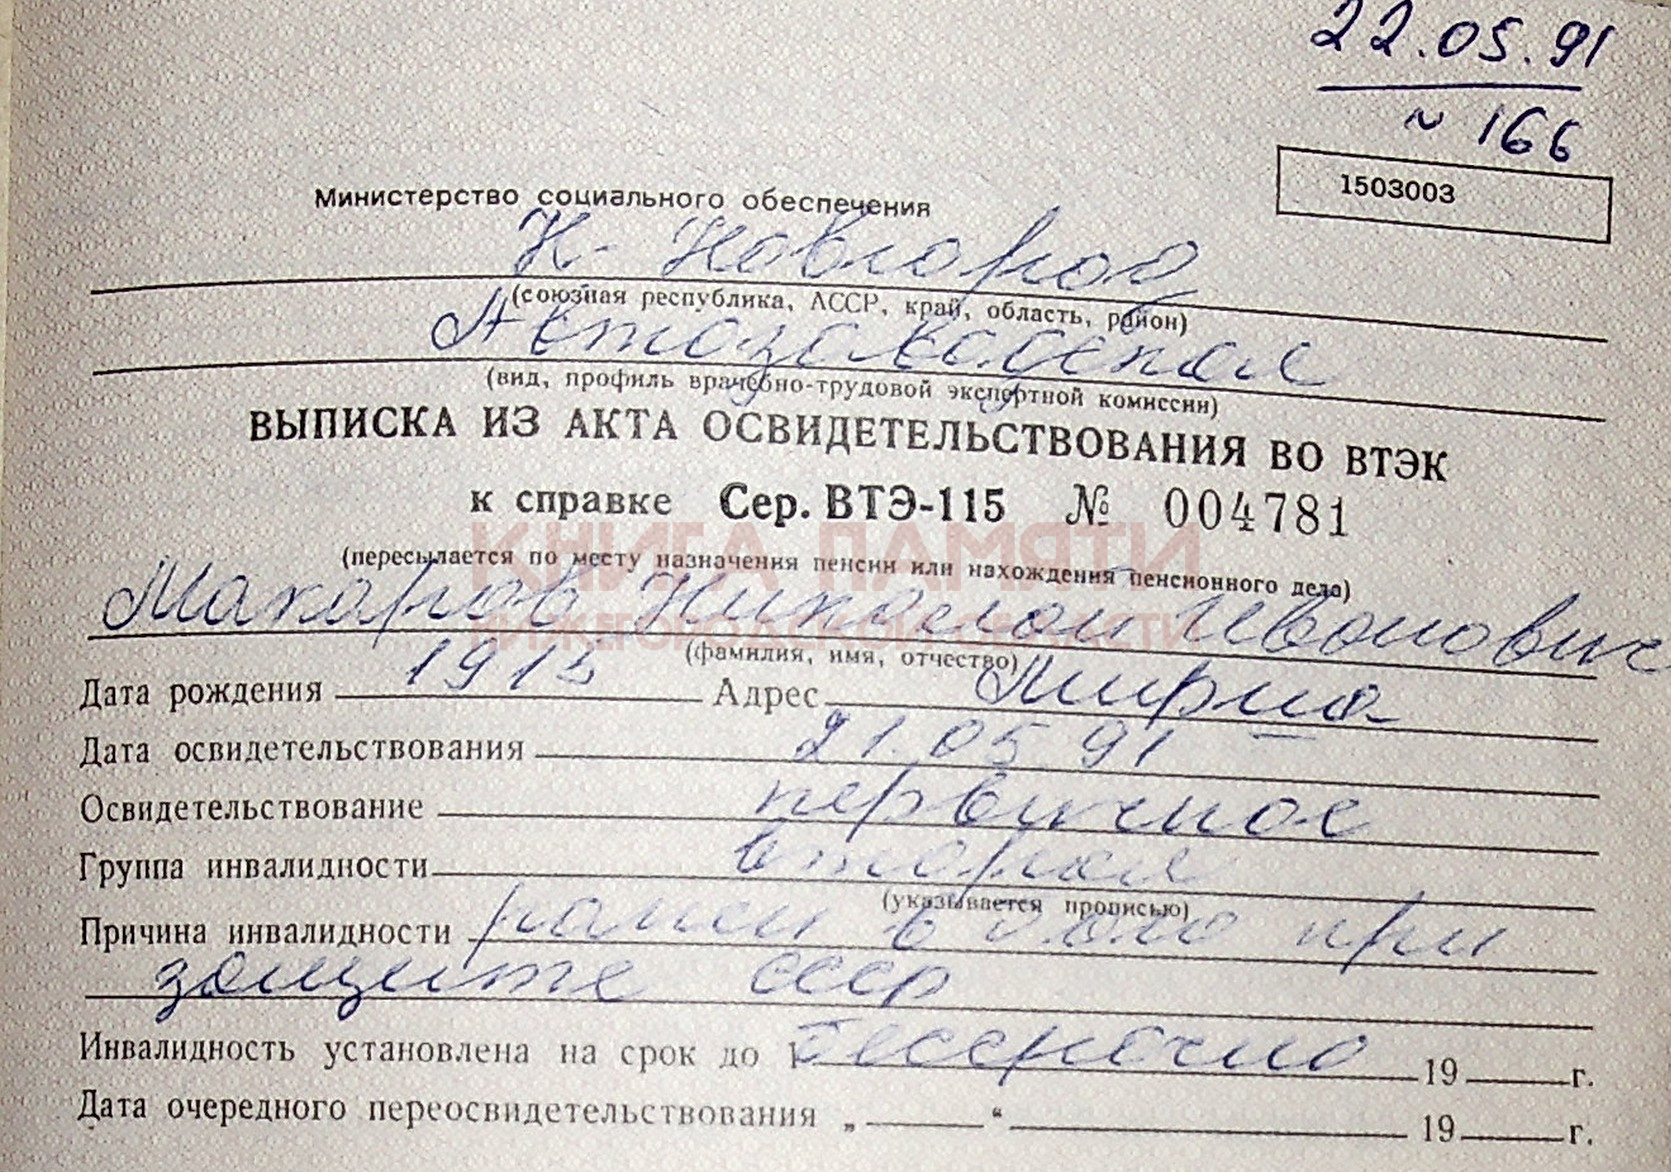 22.05.91
~ 166
1503003
Министерство социального обеспечения
Н-Новгород
(союзная республика, АССР, край, область, район)
Автозаводская
(вид, профиль врачебно-трудовой экспертной комиссии)
ВЫПИСКА ИЗ АКТА ОСВИДЕТЕЛЬСТВОВАНИЯ ВО ВТЭК
к справке Сер. ВТЭ-115 № 004781
КНИГА ПАМЯТИ
(пересылается по месту назначения пенсии или нахождения пенсионного дела)
Макаров Николай Иванович
НИЖЕГОРОДСКОЙ ОБЛАСТИ
(фамилия, имя, отчество)
Дата рождения 1915 Адрес Мирца
Дата освидетельствования 21.05 91
Освидетельствование первичное
Группа инвалидности вторая
(указывается прописью)
Причина инвалидности ранен в бою при
защите СССР
Инвалидность установлена на срок до бессрочно 19 г.
Дата очередного переосвидетельствования „ “ 19 г.